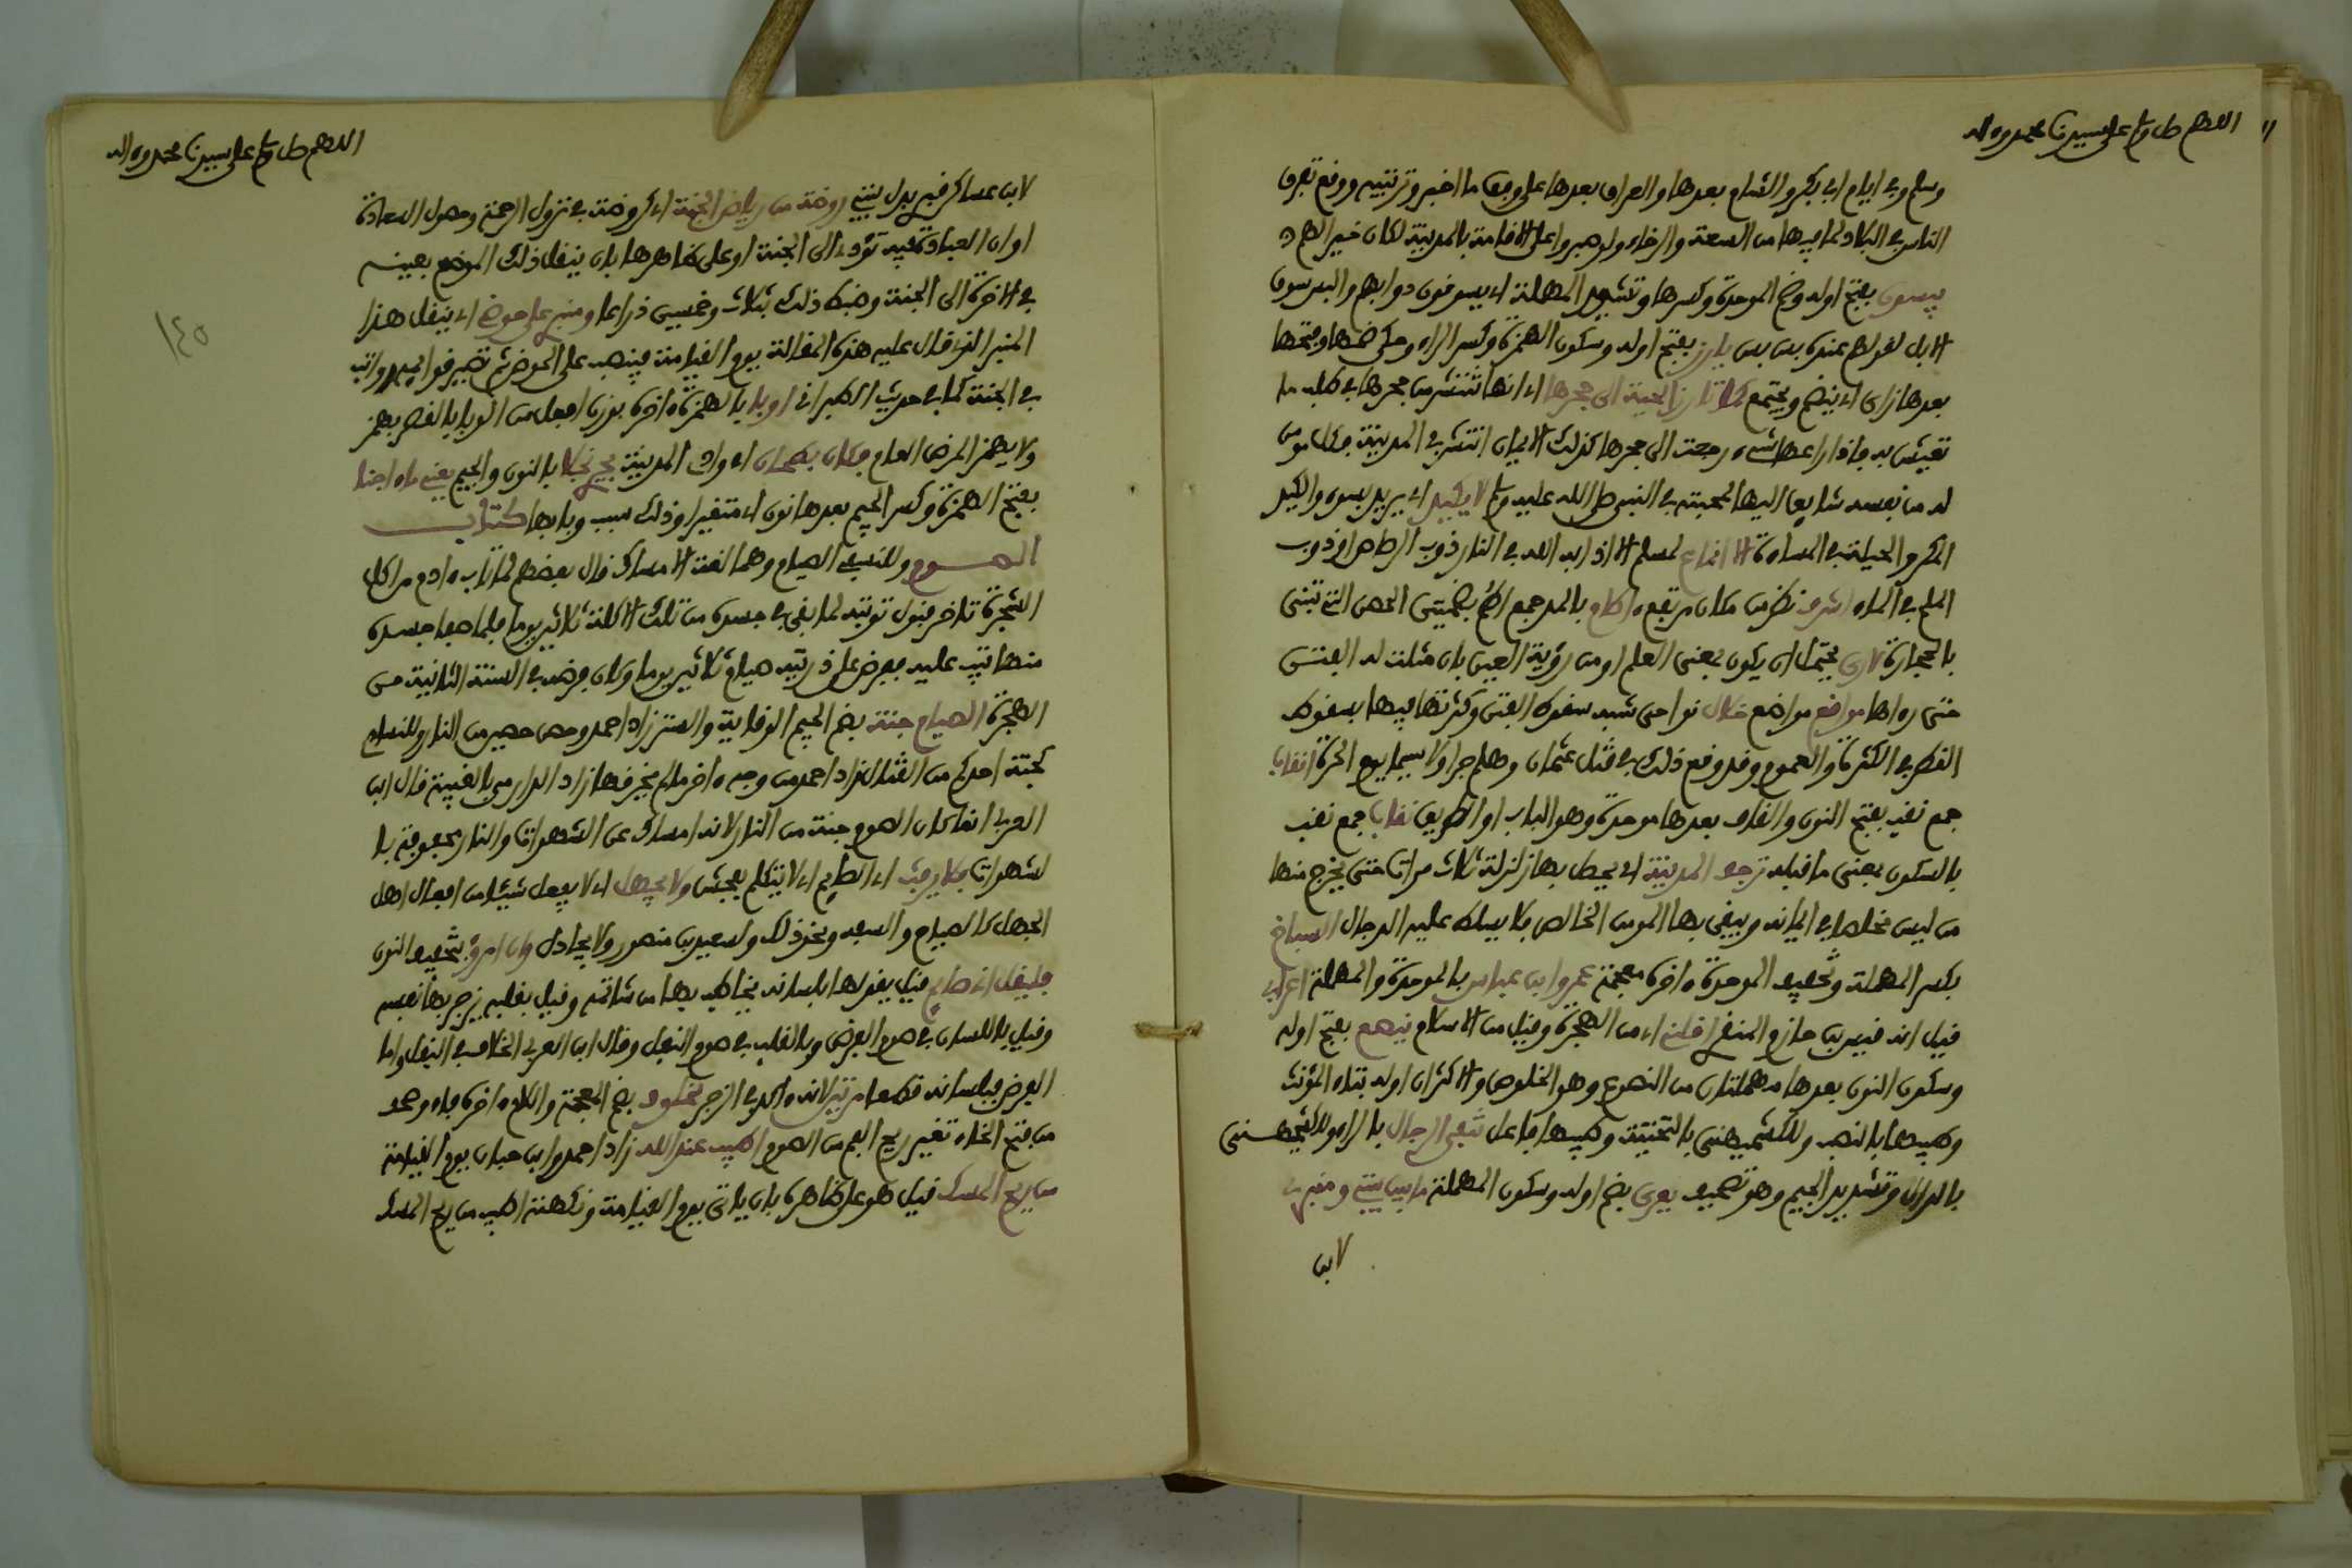 اللهم صل وسلم على سيدنا محمد وءاله
وسلم وفي أيام أبي بكر والشام بعدها والعراق بعدها على وفق ما أخبر وترتيبه ووقع تفرق
الناس في البلاد لما فيها من السعة والرخاء ولو صبروا على الاقامة بالمدينة لكان خيرا لهم
يبسون بفتح أوله وضم الموحدة وكسرها وتشديد المهملة أي يسوقون دوابهم والبس سوق
الابل لقولهم عنده بس بس يأرز بفتح أوله وسكون الهمزة وكسر الراء وحكي ضمها وفتحها
بعدها زاي أي ينضم ويجتمع كما تأرز الحية إلى جحرها أي انها تنتشر من جحرها في طلب ما
تعيش به فاذا راعها شيء رجعت إلى جحرها كذلك الايمان انتشر في المدينة فكل مومن
له من نفسه شايق اليها لمحبته في النبي صلى الله عليه وسلم لا يكيد أي يريد بسوء والكيد
المكر والحيلة في المساءة الا انماع لمسلم الا اذابه الله في النار ذوب الرصاص أو ذوب
الملح في الماء أشرف نظر من مكان مرتفع ءاطام بالمد جمع أطم بضمتين الحصن التي تبنى
بالحجارة لأرى يحتمل ان يكون بمعنى العلم أو من رؤية العين بان مثلت له الفتن
حتى رءاها مواقع مواضع خلال نواحي شبه سقوط الفتن وكثرتها فيها بسقوط
القطر في الكثرة والعموم وقد وقع ذلك في قتل عثمان وهلم جرا ولا سيما يوم الحرة انقاب
جمع نقب بفتح النون والقاف بعدها موحدة وهو الباب أو الطريق نقاب جمع نقب
بالسكون بمعنى ما قبله ترجف المدينة أي يحصل بها زلزلة ثلاث مرات حتى يخرج منها
من ليس مخلصا في ايمانه ويبقى بها المومن الخالص فلا يسلط عليه الدجال السباخ
بكسر المهملة وتخفيف الموحدة ءاخره معجمة عمرو ابن عباس بالموحدة والمهملة أعرابي
قيل انه قيس بن حازم المنقري أقلني أي من الهجرة وقيل من الاسلام ينصع بفتح أوله
وسكون النون بعدها مهملتان من النصوع وهو الخلوص والاكثر ان أوله بتاء المؤنث
وطيبها بالنصب وللكشميهني بالتحتية وطيبها فاعل تنفي الرجال بالراء وللكشميهني
بالدال وتشديد الجيم وهو تصحيف يعرى بضم أوله وسكون المهملة ما بين بيتي ومنبري
لابن
اللهم صل وسلم على سيدنا محمد وءاله
١٤٥
لابن عساكر قبر بدل بيتي روضة من رياض الجنة أي كروضة في نزول الرحمة وحصول السعادة
أو ان العبادة فيه تؤدي إلى الجنة أو على ظاهرها بان ينقل ذلك الموضع بعينه
في الاخرة إلى الجنة وضبط ذلك بثلاث وخمسين ذراعا ومنبري على حوضي أي ينقل هذا
المنبر الذي قال عليه هذه المقالة يوم القيامة فينصب على الحوض ثم تصير قوايمه رواتب
في الجنة كما في حديث الطبراني أوبأ بالهمزة ءاخره بوزن افعل من الوباء بالقصر بهمز
ولا يهمز المرض العام فكان بطحان أي وادي المدينة يجري نجلا بالنون والجيم يعني ماء ءاجنا
بفتح الهمزة وكسر الجيم بعدها نون أي متغيرا وذلك سبب وبايها كتاب
الصوم وللنسفي الصيام وهما لغة الامساك قال بعضهم لما تاب ءادم من اكل
الشجرة تاخر قبول توبته لما بقي في جسده من تلك الاكلة ثلاثين يوما فلما صفا جسده
منها تيب عليه ففرض على ذريته صيام ثلاثين يوما وكان فرضه في السنة الثانية من
الهجرة الصيام جنة بضم الجيم الوقاية والستر زاد أحمد وحصن حصين من النار وللنسائي
كجنة احدكم من القتال زاد أحمد من وجه ءاخر ما لم يخرقها زاد الدارمي بالغيبة قال ابن
العربي انما كان الصوم جنة من النار لانه امساك عن الشهوات والنار محفوفة با
لشهوات فلا يرفث أي الصايم أي لا يتكلم بفحش ولا يجهل أي لا يفعل شيئا من افعال اهل
الجهل كالصياح والسفه ونحو ذلك ولسعيد بن منصور ولا يجادل وان امرؤ بتخفيف النون
فليقل اني صايم قيل يقولها بلسانه يخاطب بها من شاتمه وقيل بقلبه يزجر بها نفسه
وقيل باللسان في صوم الفرض وبالقلب في صوم النفل وقال ابن العربي الخلاف في النفل واما
الفرض فبلسانه قطعا مرتين لانه ءاكد في الزجر لخلوف بضم المعجمة واللام ءاخره فاء وصحف
من فتح الخاء تغير ريح الفم من الصوم أطيب عند الله زاد أحمد وابن حبان يوم القيامة
من ريح المسك قيل هو على ظاهره بان ياتي يوم القيامة ونكهته اطيب من ريح المسك